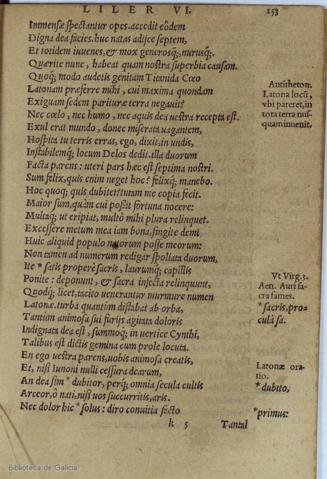 LIBER VI. 153
Inmensæ spectantur opes. accedit eòdem
Digna dea facies. huc natas adijce septem,
Et totidem iuuenes, & mox generosq;, nurusq;.
Quærite nunc, habeat quam nostra superbia causam.
Quoq; modo audetis genitam Titanida Cœo
Latonam præferre mihi, cui maxima quondam
Exiguam sedem parituræ terra negauit?
Nec cœlo, nec humo, nec aquis dea uestra recepta est.
Exul erat mundo, donec miserata uagantem,
Hospita tu terris erras, ego, dixit, in undis,
Instabilemq; locum Delos dedit. illa duorum
Facta parens: uteri pars hæc est septima nostri.
Sum felix, quis enim neget hoc? felixq; manebo.
Hoc quoq; quis dubitet? tutam me copia fecit.
Maior sum, quàm cui possit fortuna nocere:
Multaq; ut eripiat, multò mihi plura relinquet.
Excessere metum mea iam bona. fingite demi
Huic aliquid populo natorum posse meorum:
Non tamen ad numerum redigar spoliata duorum,
Ite * satis properè sacris, laurumq; capillis
Ponite: deponunt, & sacra infecta relinquunt,
Quodq; licet, tacito uenerantur murmure numen
Latonæ. turba quantùm distabat ab orba,
Indignata dea est, summoq; in uertice Cynthi,
Talibus est dictis gemina cum prole locuta.
En ego uestra parens, uobis animosa creatis,
Et, nisi Iunoni nulli cessura dearum,
An dea sim * dubitor, perq; omnia secula cultis
Arceor, ô nati, nisi uos succurritis, aris.
Nec dolor hic * solus: diro conuitia facto
k 5 Tantal
Antitheton.
Latona loco,
vbi pareret, in
tota terra nus-
quam inuenit.
Vt Virg. 3.
Aen. Auri sa-
cra fames.
* sacris, pro-
culà sa.
Latonæ ora-
tio.
* dubito,
* primus:
Biblioteca de Galicia